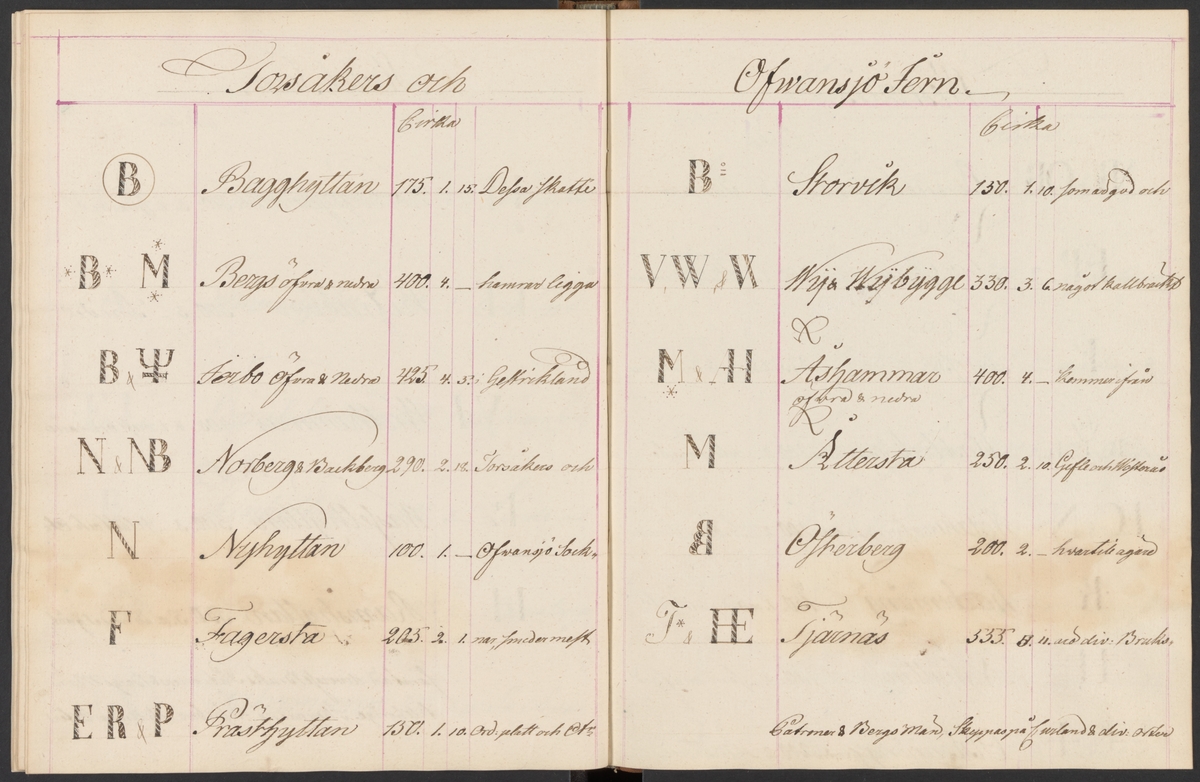 Torsåkers och
Cirka
B Bagghyttan 175. 1. 15. Dessa skatte
*B* M Bergs öfvra & nedra 400. 4. — hamrar ligga
B & Jerbo Öfvra & Nedra 425. 4. 5. i Gestrickland
N & NB Norberg & Backberg 290. 2. 18. Torsåkers och
N Nyhyttan 100. 1. — Ofvansjö Sock-
F Fagersta 205. 2. 1. nar, smeder mest
E R & P Prästhyttan 150. 1. 10. Ord. platt och
Ofwansjö Jern.
Cirka
B Storvik 150. 1. 10. som är god och
V, W, & W Wij & Wijbygge 330. 3. 6. något kallbräckt
M & AH Åshammar 400. 4. — kommer ifrån
öfvra & nedra
M Åttersta 250. 2. 10. Gefle och Westerås
Österberg 200. 2. — hvartill ägare
T* & HE Tjärnäs 555. 4. ard div: Bruks-
Patroner & Bergs Män, Skeppas på Curland & div: orter